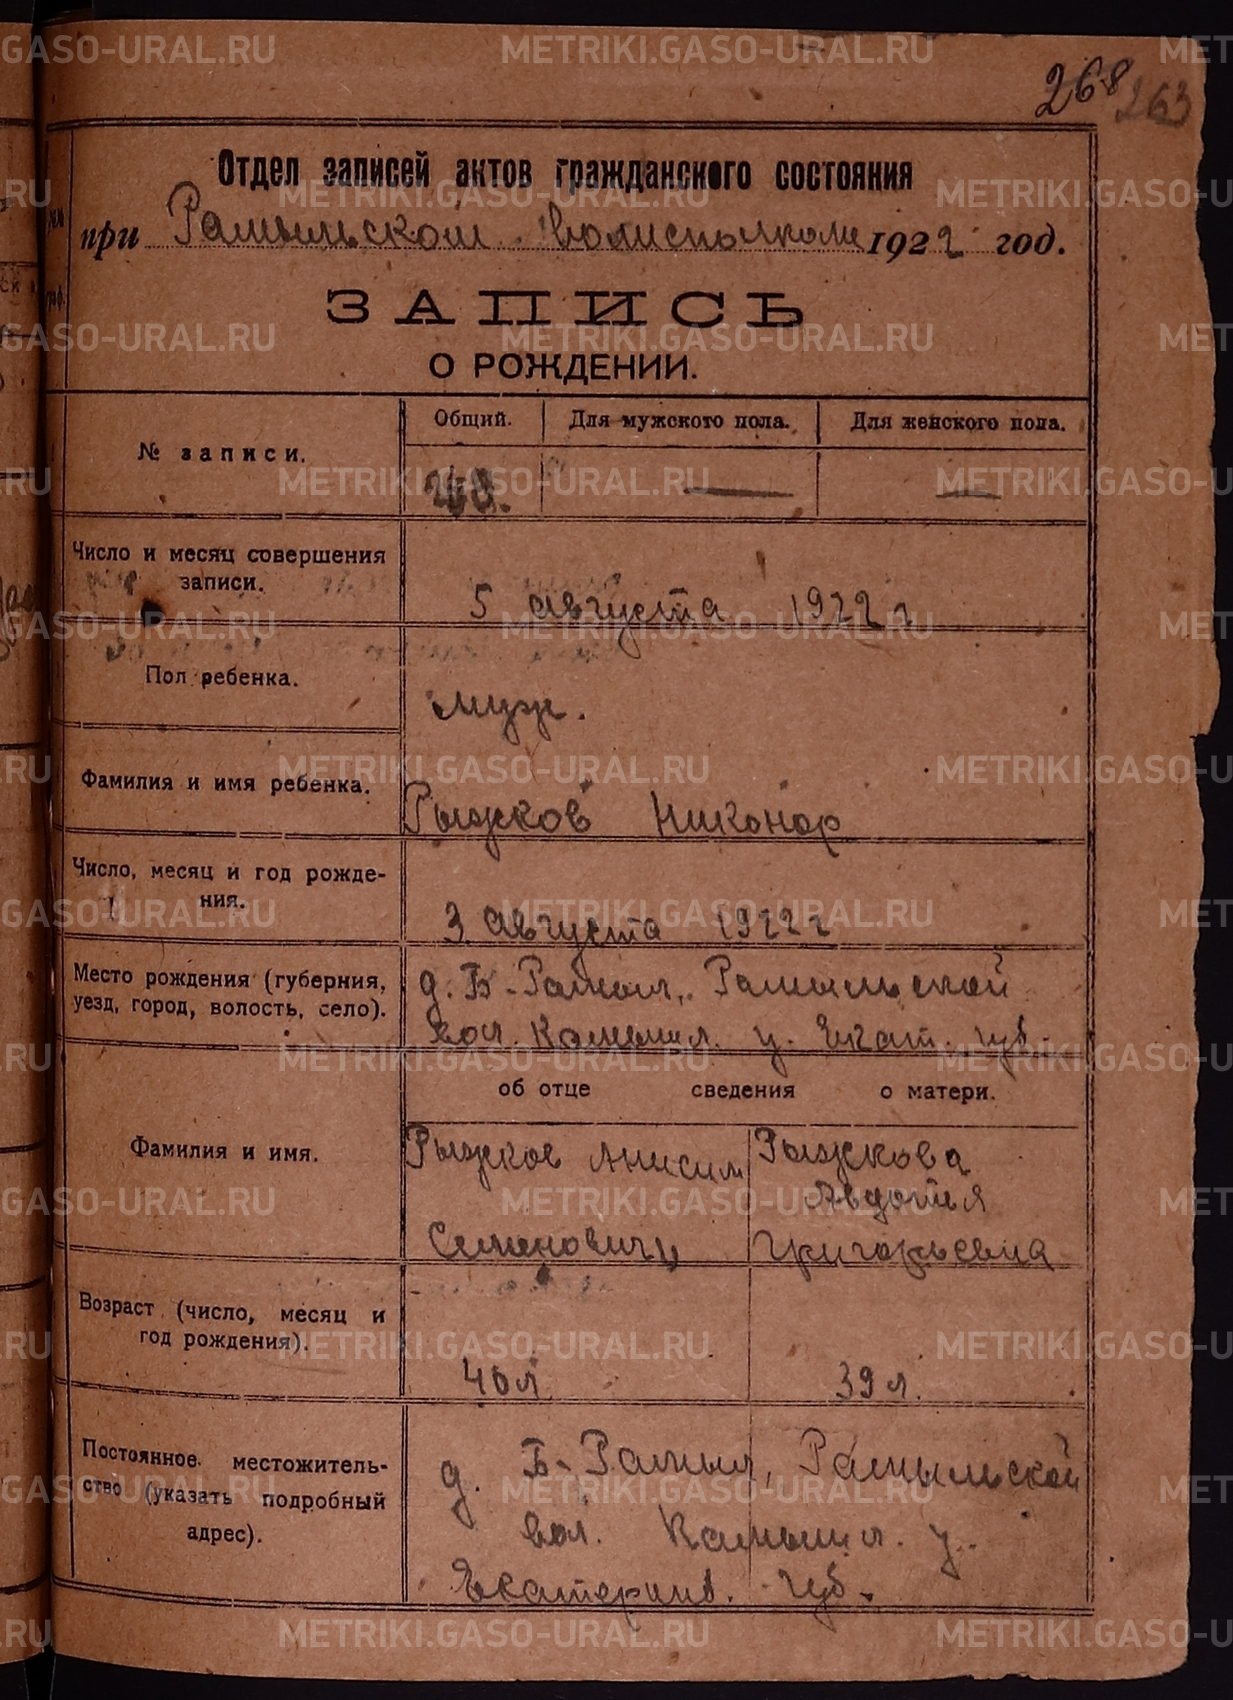 268 263
Отдел записей актов гражданского состояния
при Рамыльском волисполкоме 1922 год.
ЗАПИСЬ
О РОЖДЕНИИ.
№ записи.
Общий. Для мужского пола. Для женского пола.
— —
Число и месяц совершения
записи.
5 августа 1922 г
Пол ребенка.
муж.
Фамилия и имя ребенка.
Рыжков Никонор
Число, месяц и год рожде-
ния.
3 августа 1922 г
Место рождения (губерния,
уезд, город, волость, село).
д. Б-Рамыл, Рамыльской
вол. Камышл. у. Екат. губ.
об отце сведения о матери.
Фамилия и имя.
Рыжков Анисим
Семенович
Рыжкова
Авдотья
Григорьевна
Возраст (число, месяц и
год рождения).
40 л
39 л.
Постоянное местожитель-
ство (указать подробный
адрес).
д. Б-Рамыл, Рамыльской
вол. Камышл. у.
Екатеринб. губ.
METRIKI.GASO-URAL.RU